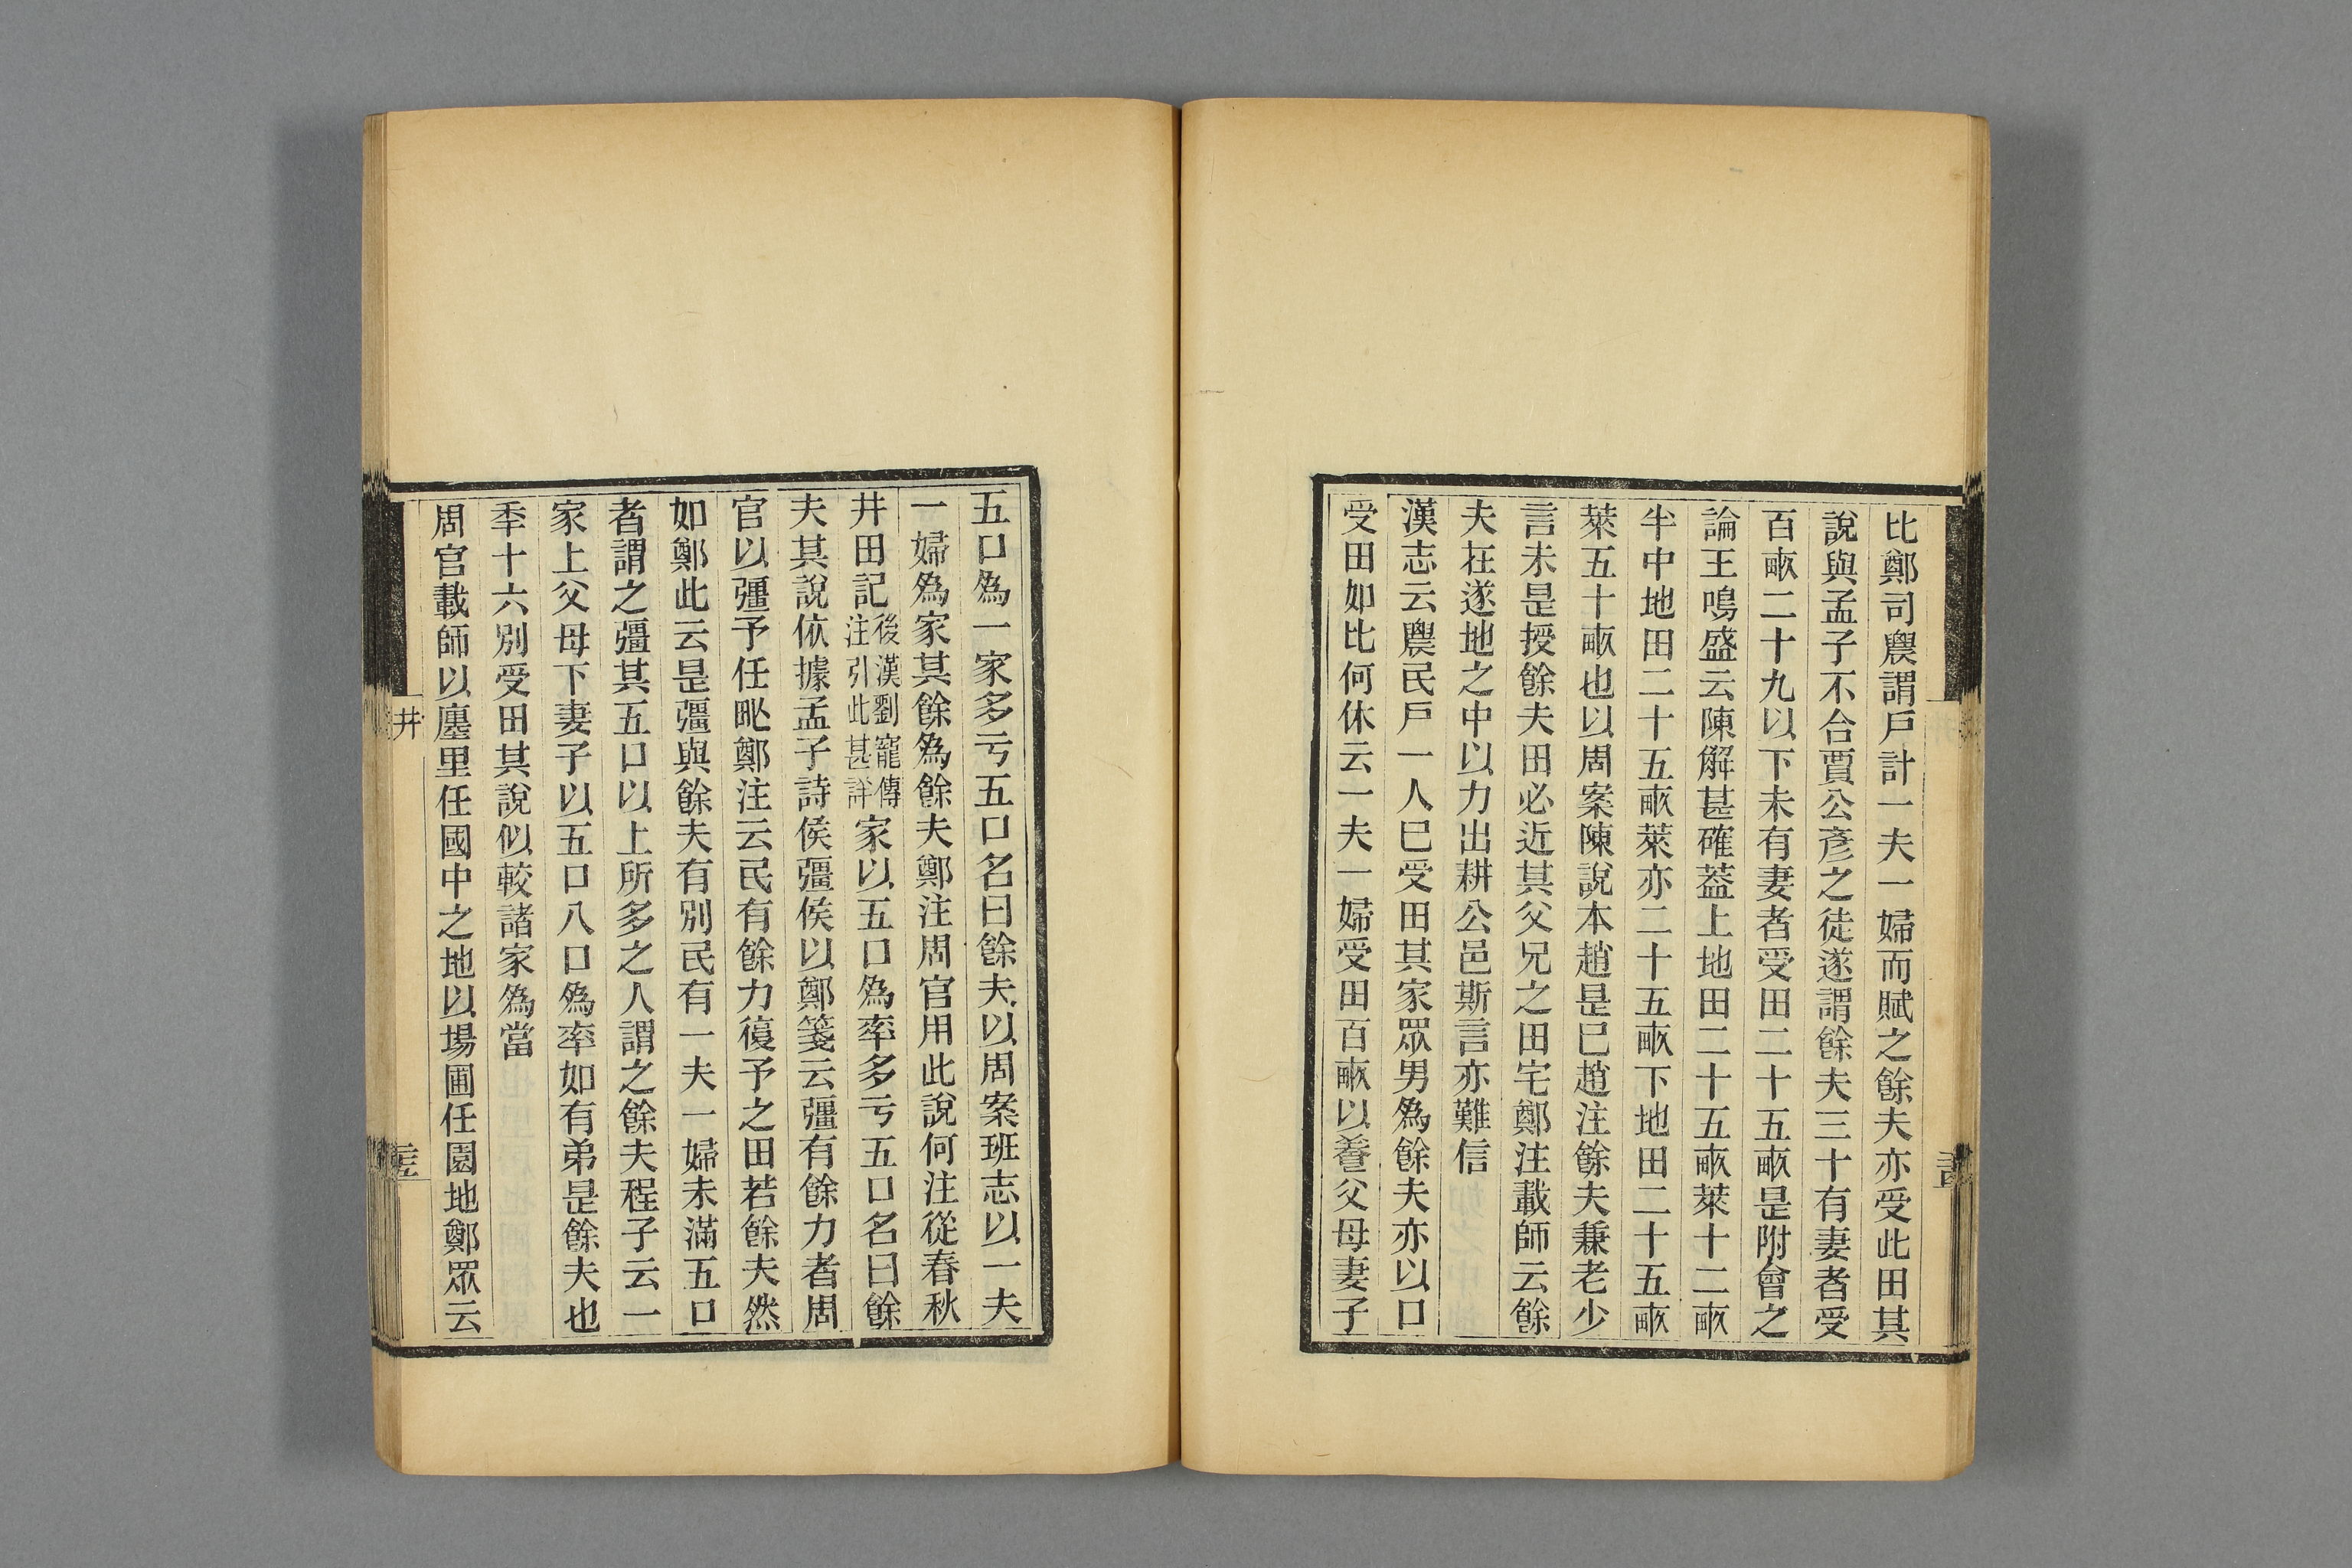 比鄭司農謂戶計一夫一婦而賦之餘夫亦受此田其
說與孟子不合賈公彥之徒遂謂餘夫三十有妻者受
百畞二十九以下未有妻者受田二十五畞是附會之
論王鳴盛云陳解甚確葢上地田二十五畞萊十二畞
半中地田二十五畞萊亦二十五畞下地田二十五畞
萊五十畞也以周案陳說本趙是巳趙注餘夫兼老少
言未是授餘夫田必近其父兄之田宅鄭注載師云餘
夫在遂地之中以力出耕公邑斯言亦難信
漢志云農民戶一人巳受田其家眾男爲餘夫亦以口
受田如比何休云一夫一婦受田百畞以養父母妻子
五口爲一家多亏五口名曰餘夫以周案班志以一夫
一婦爲家其餘爲餘夫鄭注周官用此說何注從春秋
井田記後漢劉寵傳注引此甚詳家以五口爲率多亏五口名曰餘
夫其說依據孟子詩侯彊侯以鄭箋云彊有餘力者周
官以彊予任甿鄭注云民有餘力復予之田若餘夫然
如鄭此云是彊與餘夫有別民有一夫一婦未滿五口
者謂之彊其五口以上所多之人謂之餘夫程子云一
家上父母下妻子以五口八口爲率如有弟是餘夫也
秊十六別受田其說似較諸家爲當
周官載師以廛里任國中之地以場圃任園地鄭眾云
井